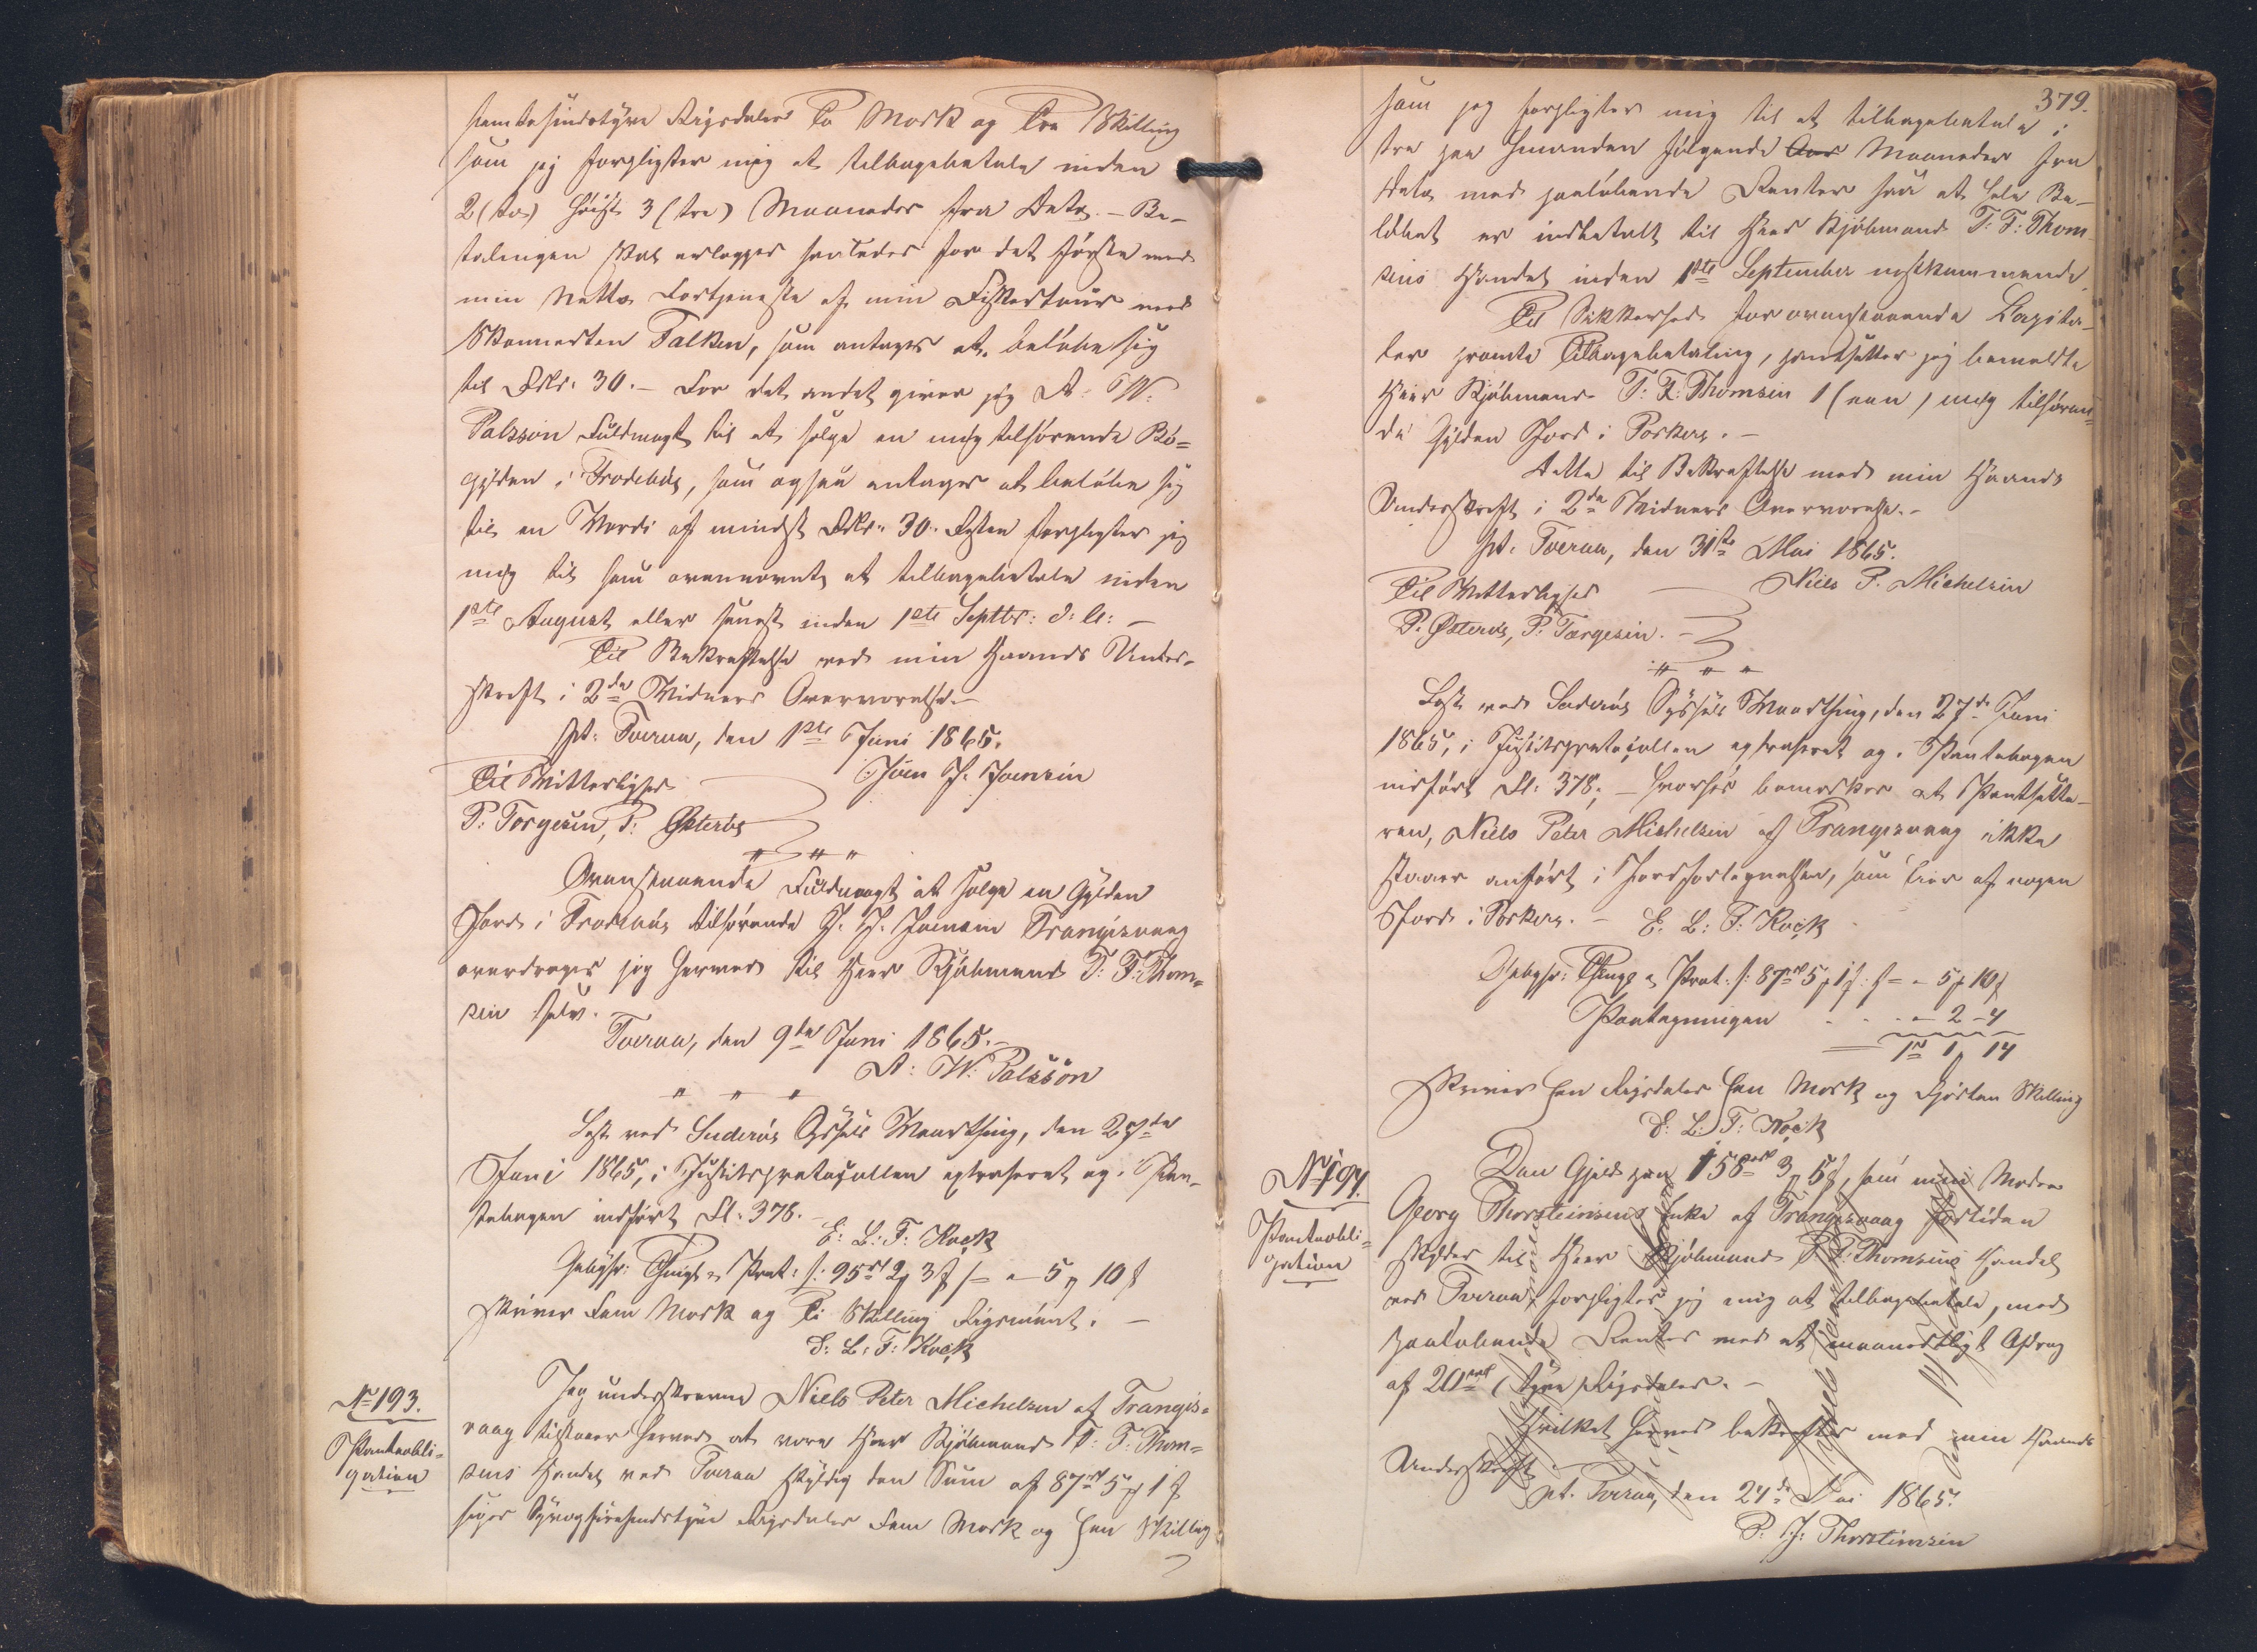 femtesindstyve Rigsdaler To Mark og Tre Skilling
som jeg forpligter mig at tilbagebetale inden
2 (to) høist 3 (tre) Maaneder fra Dato. – Be-
talingen skal erlægges saaledes for det første med
min Netto Fortjeneste af min Fisketour med
Skonnerten Falken, som antages at beløbe sig
til Rdlr. 30. – For det andet giver jeg A. W.
Palsson Fuldmagt til at sælge en mig tilhørende Bø-
gylden i Frodebø, som ogsaa antages at beløbe sig
til en Værdi af mindst Rdlr. 30. Resten forpligter jeg
mig til som ovennævnt at tilbagebetale inden
1ste August eller senest inden 1ste Septbr: d: A: –
Til Bekræftelse med min Haands Under-
skrift i 2de Vidners Overværelse. –
pt. Tveraa, den 1ste Juni 1865.
Joen J. Joensen
Til Vitterlighed
P: Torgersen, P: Østerø
" " "
Ovenstaaende Fuldmagt at sælge en Gylden
Jord i Frodebø tilhørende J. J. Joensen Trangisvaag
overdrages jeg hermed til Herr Kjøbmand T: F: Thom-
sen selv.
Tveraa, den 9de Juni 1865. –
A: W: Palsson
" " "
Læst ved Suderøs Syssels Vaarthing, den 27de
Juni 1865, i Justitsprotocollen extraheret og i Pan-
tebogen indført Fl. 378. –
E: L: F: Kock
Gebyhr: Thingl. & Prot: /: 95rd 2 mk 3 s /– " – 5 mk 10 s
skriver Fem Mark og Ti Skilling Rigsmønt. –
E: L: F: Kock
No 193.
Panteobli-
gation
Jeg underskrevne Niels Peter Michelsen af Trangis-
vaag tilstaaer herved at være Herr Kjøbmand T: F: Thom-
sens Handel ved Tveraa skyldig den Sum af 87rd 5 mk 1 s
siger Syvogfirsindstyve Rigsdaler Fem Mark og Een Skilling
379.
som jeg forpligter mig til at tilbagebetale i
tre paa hinanden følgende Aar Maaneder fra
Dato med paaløbende Renter saa at hele Be-
løbet er indbetalt til Herr Kjøbmand T: F: Thom-
sens Handel inden 1ste September nestkommende.
Til Sikkerhed for ovenstaaende Kapita-
ler promte Tilbagebetaling, pantsætter jeg bemeldte
Herr Kjøbmand T: F: Thomsen 1 (een) mig tilhøren-
de Gylden Jord i Porkere. –
Dette til Bekræftelse med min Haands
Underskrift i 2de Vidners Overværelse. –
pt. Tveraa, den 31te Mai 1865.
Niels P. Michelsen
Til Vitterlighed
P. Østerø, P: Torgersen. –
" " "
Læst ved Suderøs Syssels Vaarthing, den 27de Juni
1865, i Justitsprotocollen extraheret og i Pantebogen
indført Fl: 378; – hvorhos bemærkes at Pantsætte-
ren, Niels Peter Michelsen af Trangisvaag ikke
staaer anført i Jordfortegnelsen, som Eier af nogen
Jord i Porkere. –
E. L: F: Kock
Gebyhr: Thingl. & Prot: /: 87rd 5 mk 1 s :/ – " – 5 mk 10 s
Pantegningen . . . " – 2 – 4
1rd 1 mk 14
skriver Een Rigsdaler Een Mark og Fjorten Skilling
E: L: F: Kock
No 194.
Panteobli-
gation
Den Gjeld paa 158rd 3 mk 5 s, som min Moder
Georg Thorsteinsens Enke af Trangisvaag fortiden
skylder til Herr Kjøbmand T. F: Thomsens Handel
ved Tveraa, forpligter jeg mig at tilbagebetale, med
paaløbende Renter med et maanedtligt Afdrag
af 20rd (tyve) Rigsdaler. –
Hvilket herved bekræftes med min Haands
Underskrift. –
pt. Tveraa, den 24de Mai 1865.
P. J: Thorsteinsen